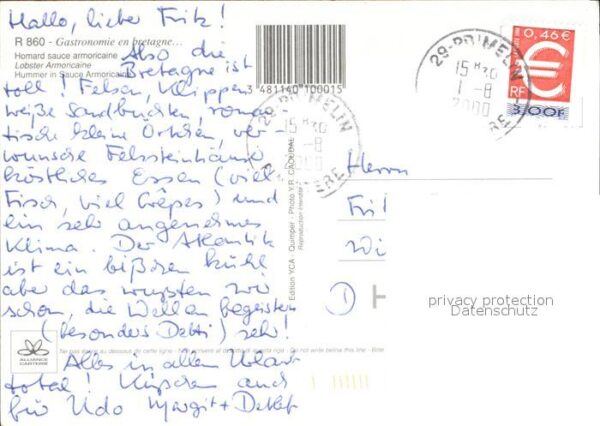 Hallo, lieber Fritz!
R 860 - Gastronomie en bretagne...
Homard sauce armoricaine
Lobster Armoricaine
Hummer in Sauce Armoricaine
Also die
Bretagne ist
toll! Felsen, Klippen
weiße Sandbuchten, roman-
tische kleine Örtchen, ver-
wunschene Felssteinhäuser
köstliches Essen (viel
Fisch, viel Crêpes) und
ein sehr angenehmes
Klima. Der Atlantik
ist ein bißchen kühl
aber das wußten wir
schon, die Wellen begeistern
(besonders Detti) sehr!
Alles in allem Urlaub
total! Küßchen auch
für Udo Margit + Detlef
3 481140 100015
Edition YCA - Quimper - Photo Y.R. CAOUDAL
Reproduction interdite
ALLIANCE CARTERIE
Ne pas écrire au dessous de cette ligne - Nicht schreiben unter - Do not write below this line
0,46 €
RF
3,00F
29-PRIMELIN
15 H30
1 -8
2000
FINISTERE
29-PRIMELIN
15 H30
-8
2000
Herrn
Fri
Wi
D
privacy protection
Datenschutz